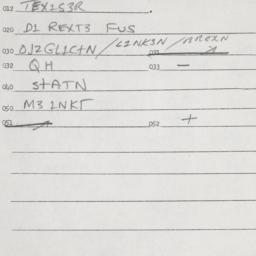 012 TEXIS3R
020 D1 REXT3 FUS
030 DJ2GL1CTN / L2NK3N / AREXN
032 QH 033 —
040 STATN
050 M3 INKT
051 052 +